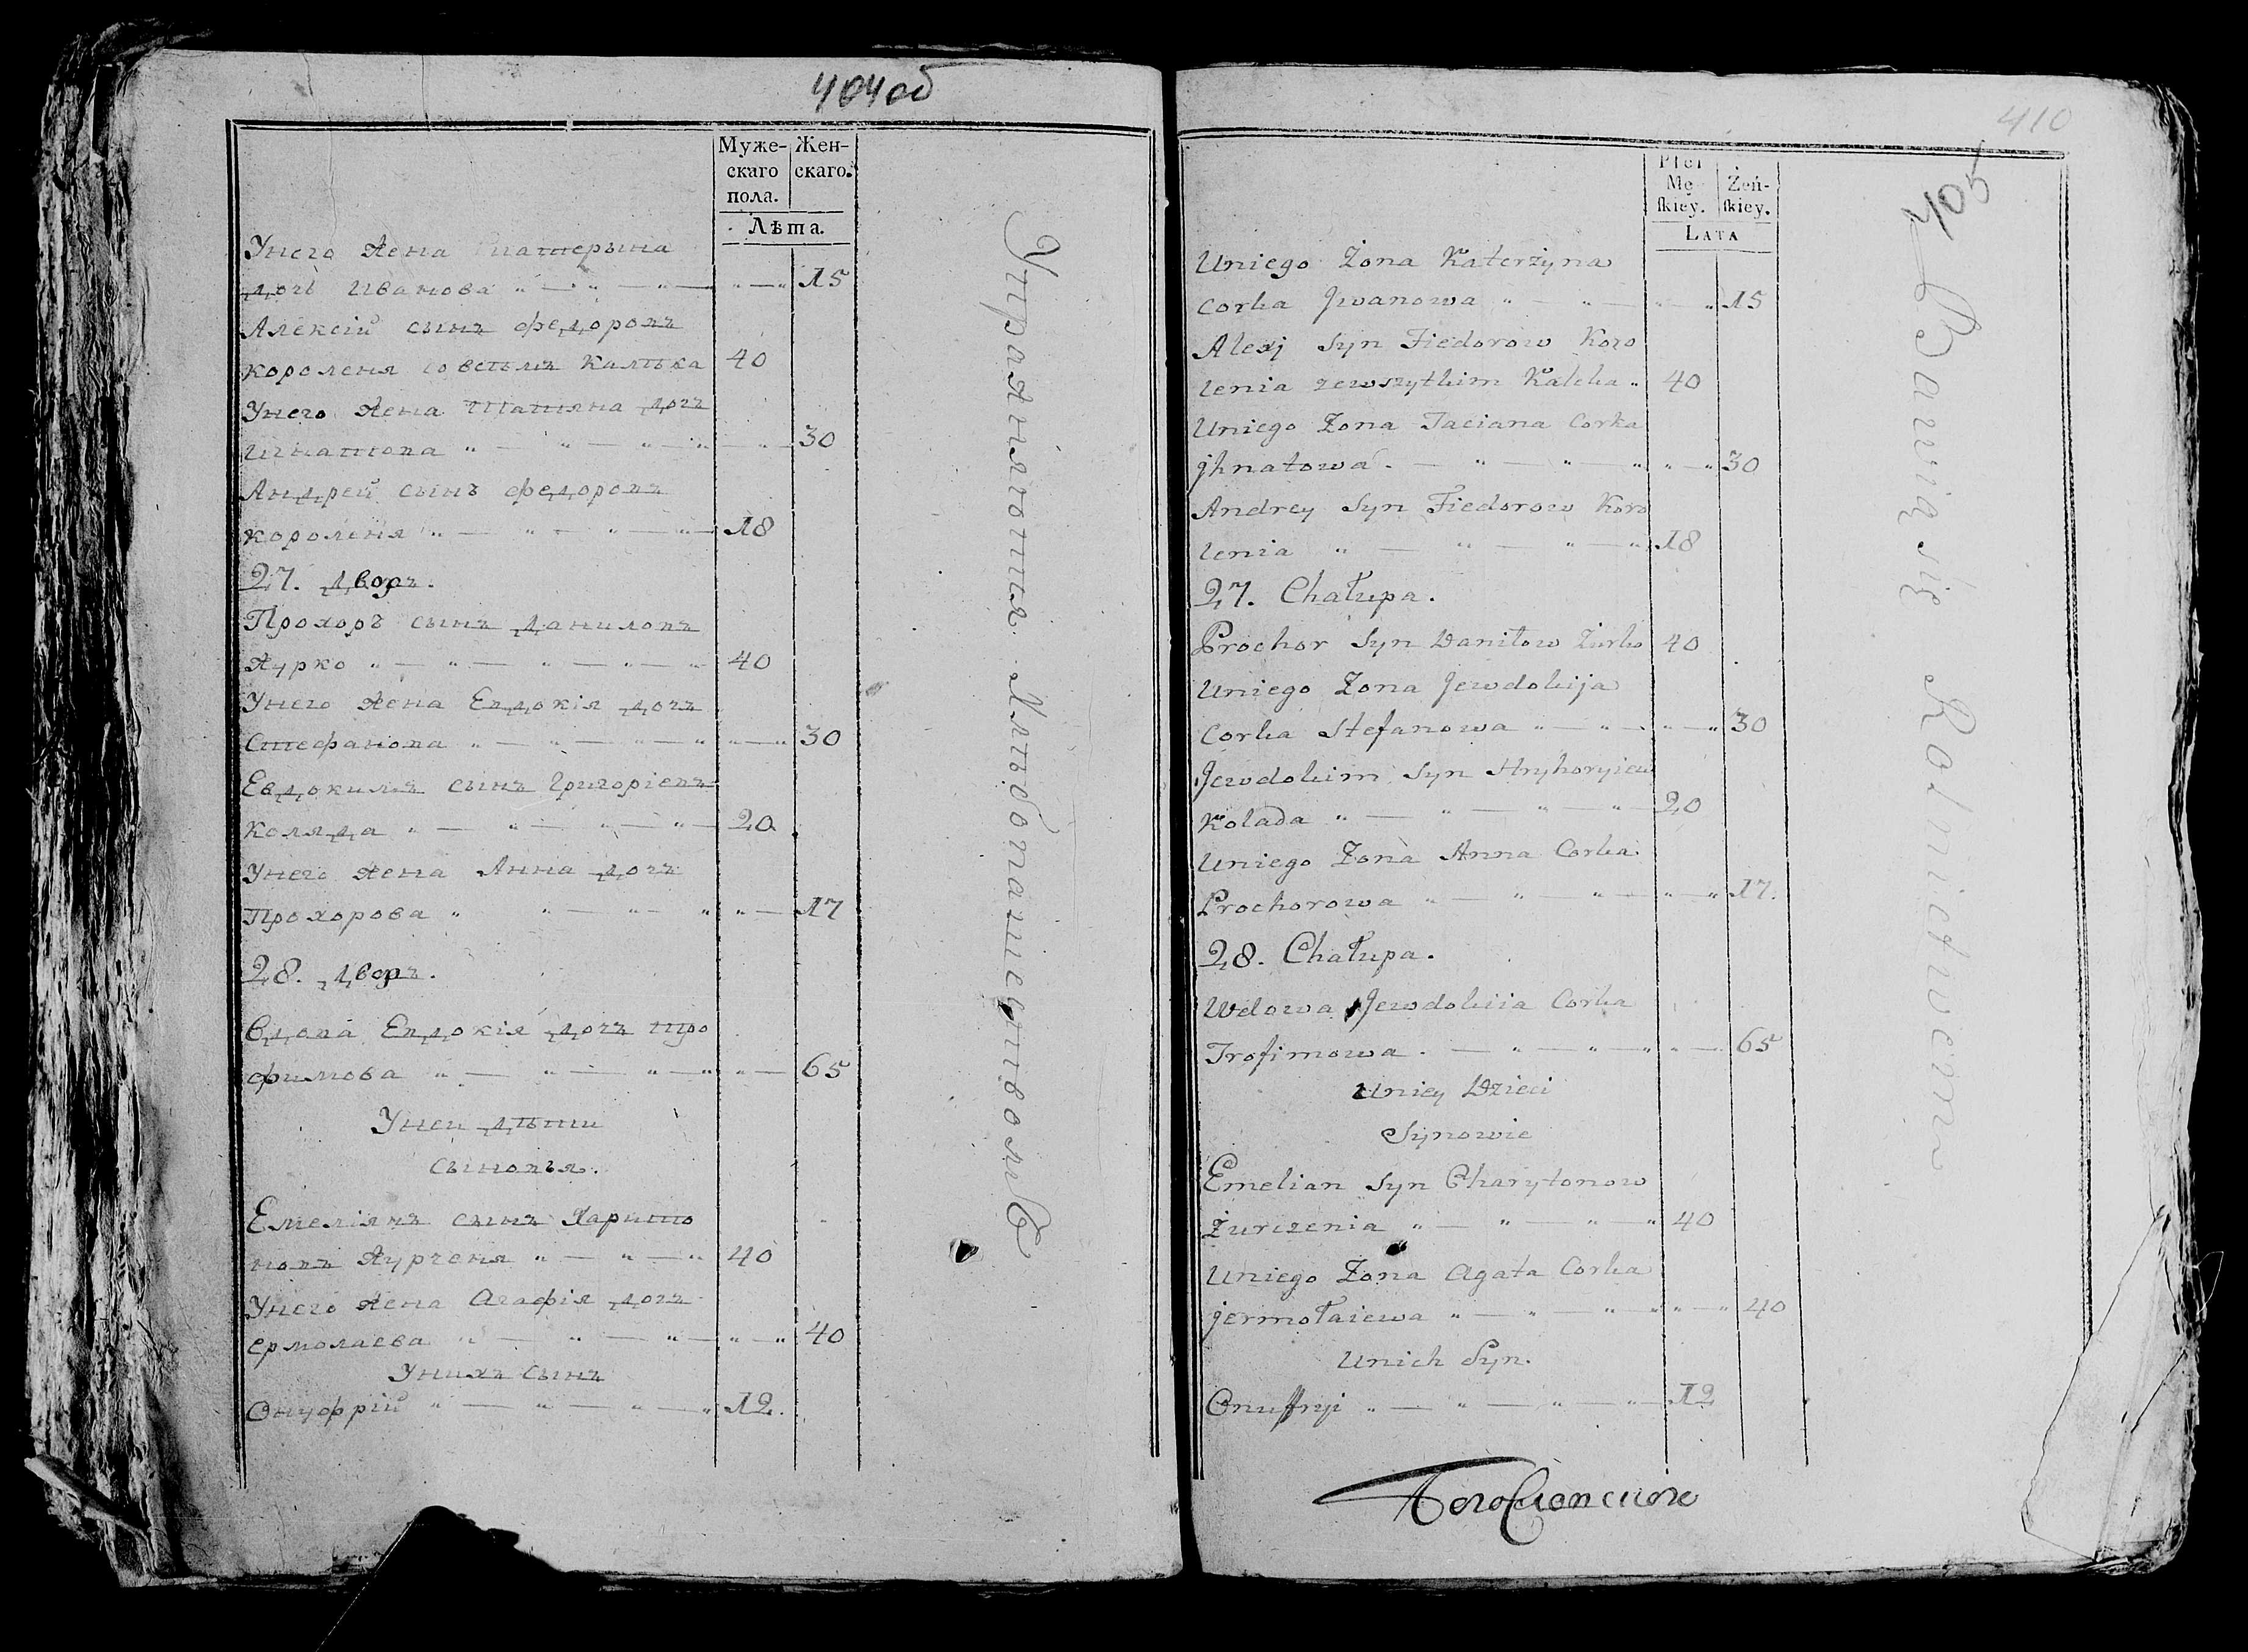 404об
Муже- Жен-
скаго скаго.
пола.
Лѣта.
Унего жена Катерына
дочь Иванова 15
Алексій сынъ Федоровъ
короленя совсѣмъ калѣка 40
Унего жена Татіяна дочь
Игнатова 30
Андрей сынъ Федоровъ
короленя 18
27. дворъ.
Прохоръ сынъ Даниловъ
Журко 40
Унего жена Евдокія дочъ
Стефанова 30
Евдокимъ сынъ Григоріевъ
Коляда 20
Унего жена Анна дочъ
Прохорова 17
28. дворъ.
Вдова Евдокія дочъ Тро
фимова 65
Уней дѣти
сыновья.
Емеліянъ сынъ Харито
новъ Журченя 40
Унего жена Агафія дочъ
ермолаева 40
Унихъ сынъ
Онуфрій 12.
Упражняются Хлѣбопашествомъ
410
405
Płci
Mę- Żeń-
skiey. skiey.
LATA
Uniego Żona Katerżyna
Corka Jwanowa 15
Alexj Syn Fiedorow Koro
lenia zewszytkim Kaleka 40
Uniego Żona Taciana Corka
jhnatowa 30
Andrey Syn Fiedorow Koro
lenia 18
27. Chałupa.
Prochor Syn Daniłow Żurko 40
Uniego Żona Jewdokija
Corka Stefanowa 30
Jewdokim Syn Hryhoryiew
Kolada 20
Uniego Żona Anna Corka
Prochorowa 17.
28. Chałupa.
Wdowa Jewdokiia Corka
Trofimowa 65
Uniey Dzieci
Synowie
Emelian Syn Charytonow
Żurczenia 40
Uniego Żona Agata Corka
jermołaiewa 40
Unich Syn.
Onufryi 12
Bawią się Rolnictwem